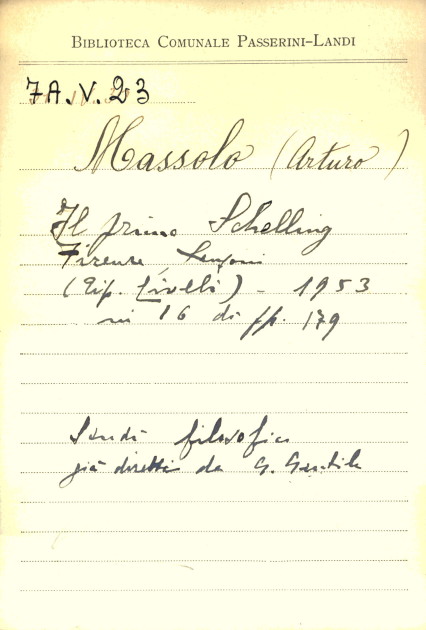 BIBLIOTECA COMUNALE PASSERINI-LANDI
7A.V.23
Massolo (Arturo)
Il primo Schelling
Firenze Sansoni
(Tip. Civelli) - 1953
in 16 di pp. 179
Studi filosofici
già diretti da G. Gentile